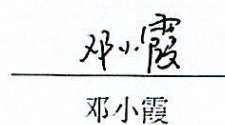 邓小霞
邓小霞